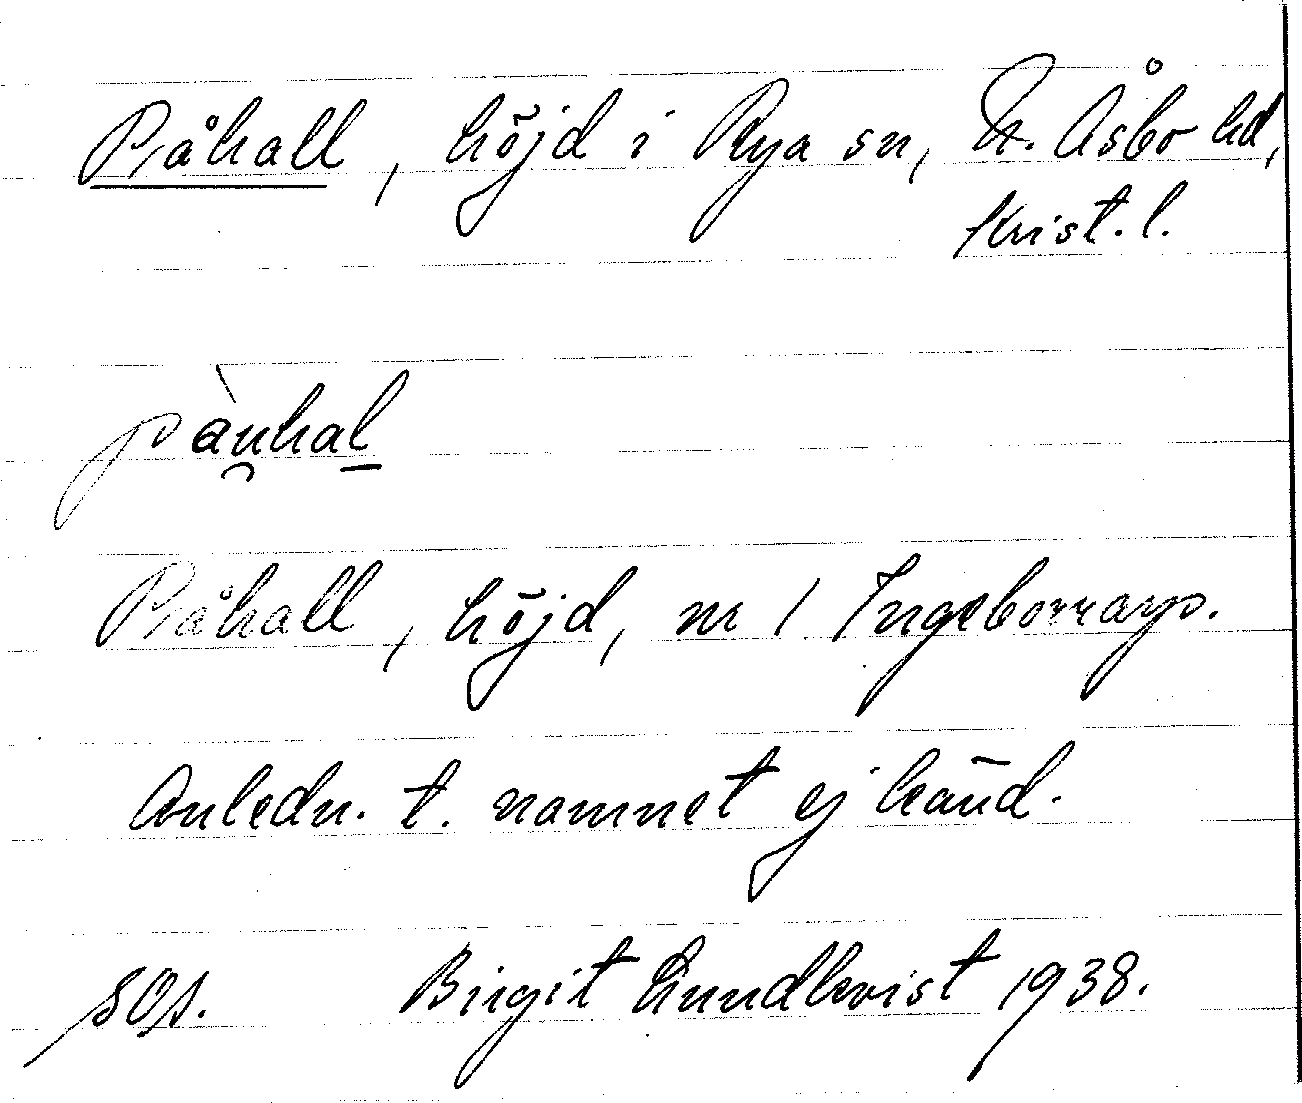 Påhall, höjd i Rya sn, N. Åsbo hd,
Krist. l.
pàu̯hal
Påhall, höjd, nr 1 Ingeborrarp.
Anledn. t. namnet ej känd.
sOs. Birgit Lundkvist 1938.